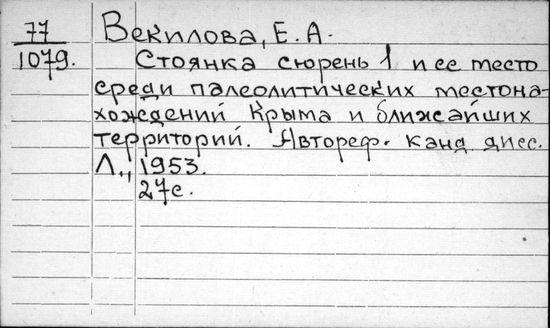 77 Векилова, Е. А.
1079. Стоянка сюрень 1 и ее место
среди палеолитических местона-
хождений Крыма и ближайших
территорий. Автореф. канд дисс.
Л., 1953.
27с.